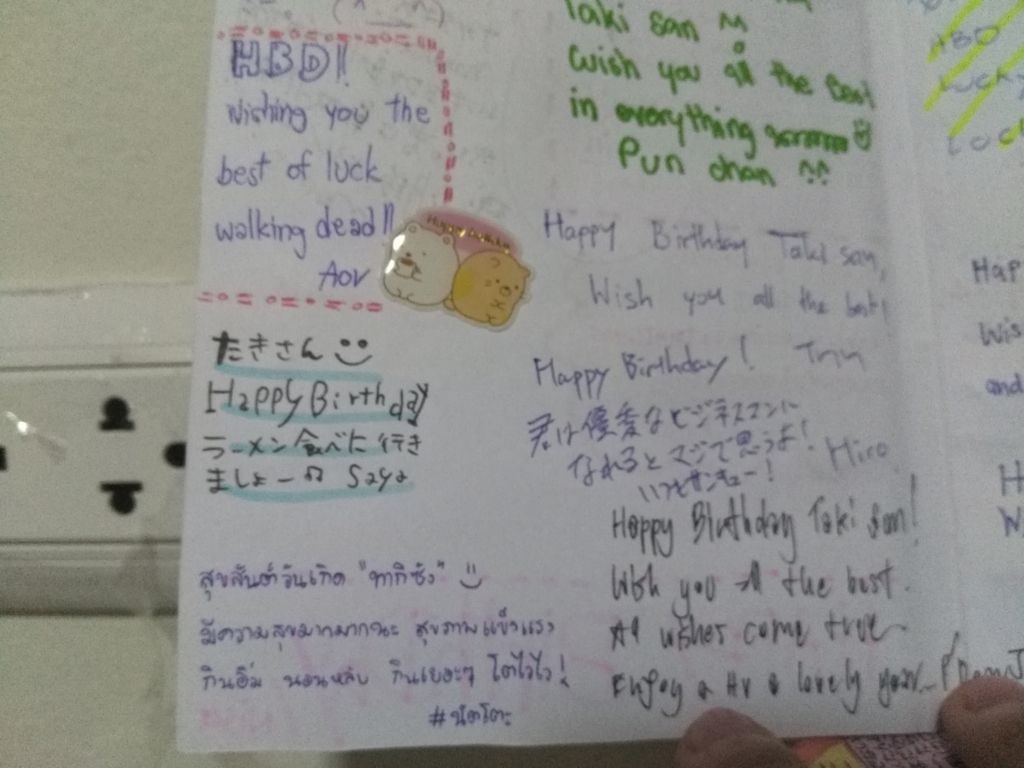 HBD!!
Wishing you the
best of luck
walking dead!!
Aov
たきさん
Happy Birthday
ラーメン食べに行き
ましょー♫ Saya
สุขสันต์วันเกิด "ทากิซัง"
มีความสุขมากมากนะ สุขภาพแข็งแรง
กินอิ่ม นอนหลับ กินเยอะๆ โตไวไว!
Taki san
Wish you all the best
in everything
Pun chan ^^
Happy Birthday Taki san,
Wish you all the best!
Happy Birthday!
君は優秀なビジネスマンに
なれるとマジで思うよ!
Hiro
Happy Birthday Taki san!
Wish you all the best.
All wishes come true.
Enjoy a lovely year
HBD
Lucky
Hap
Wis
and
H
W